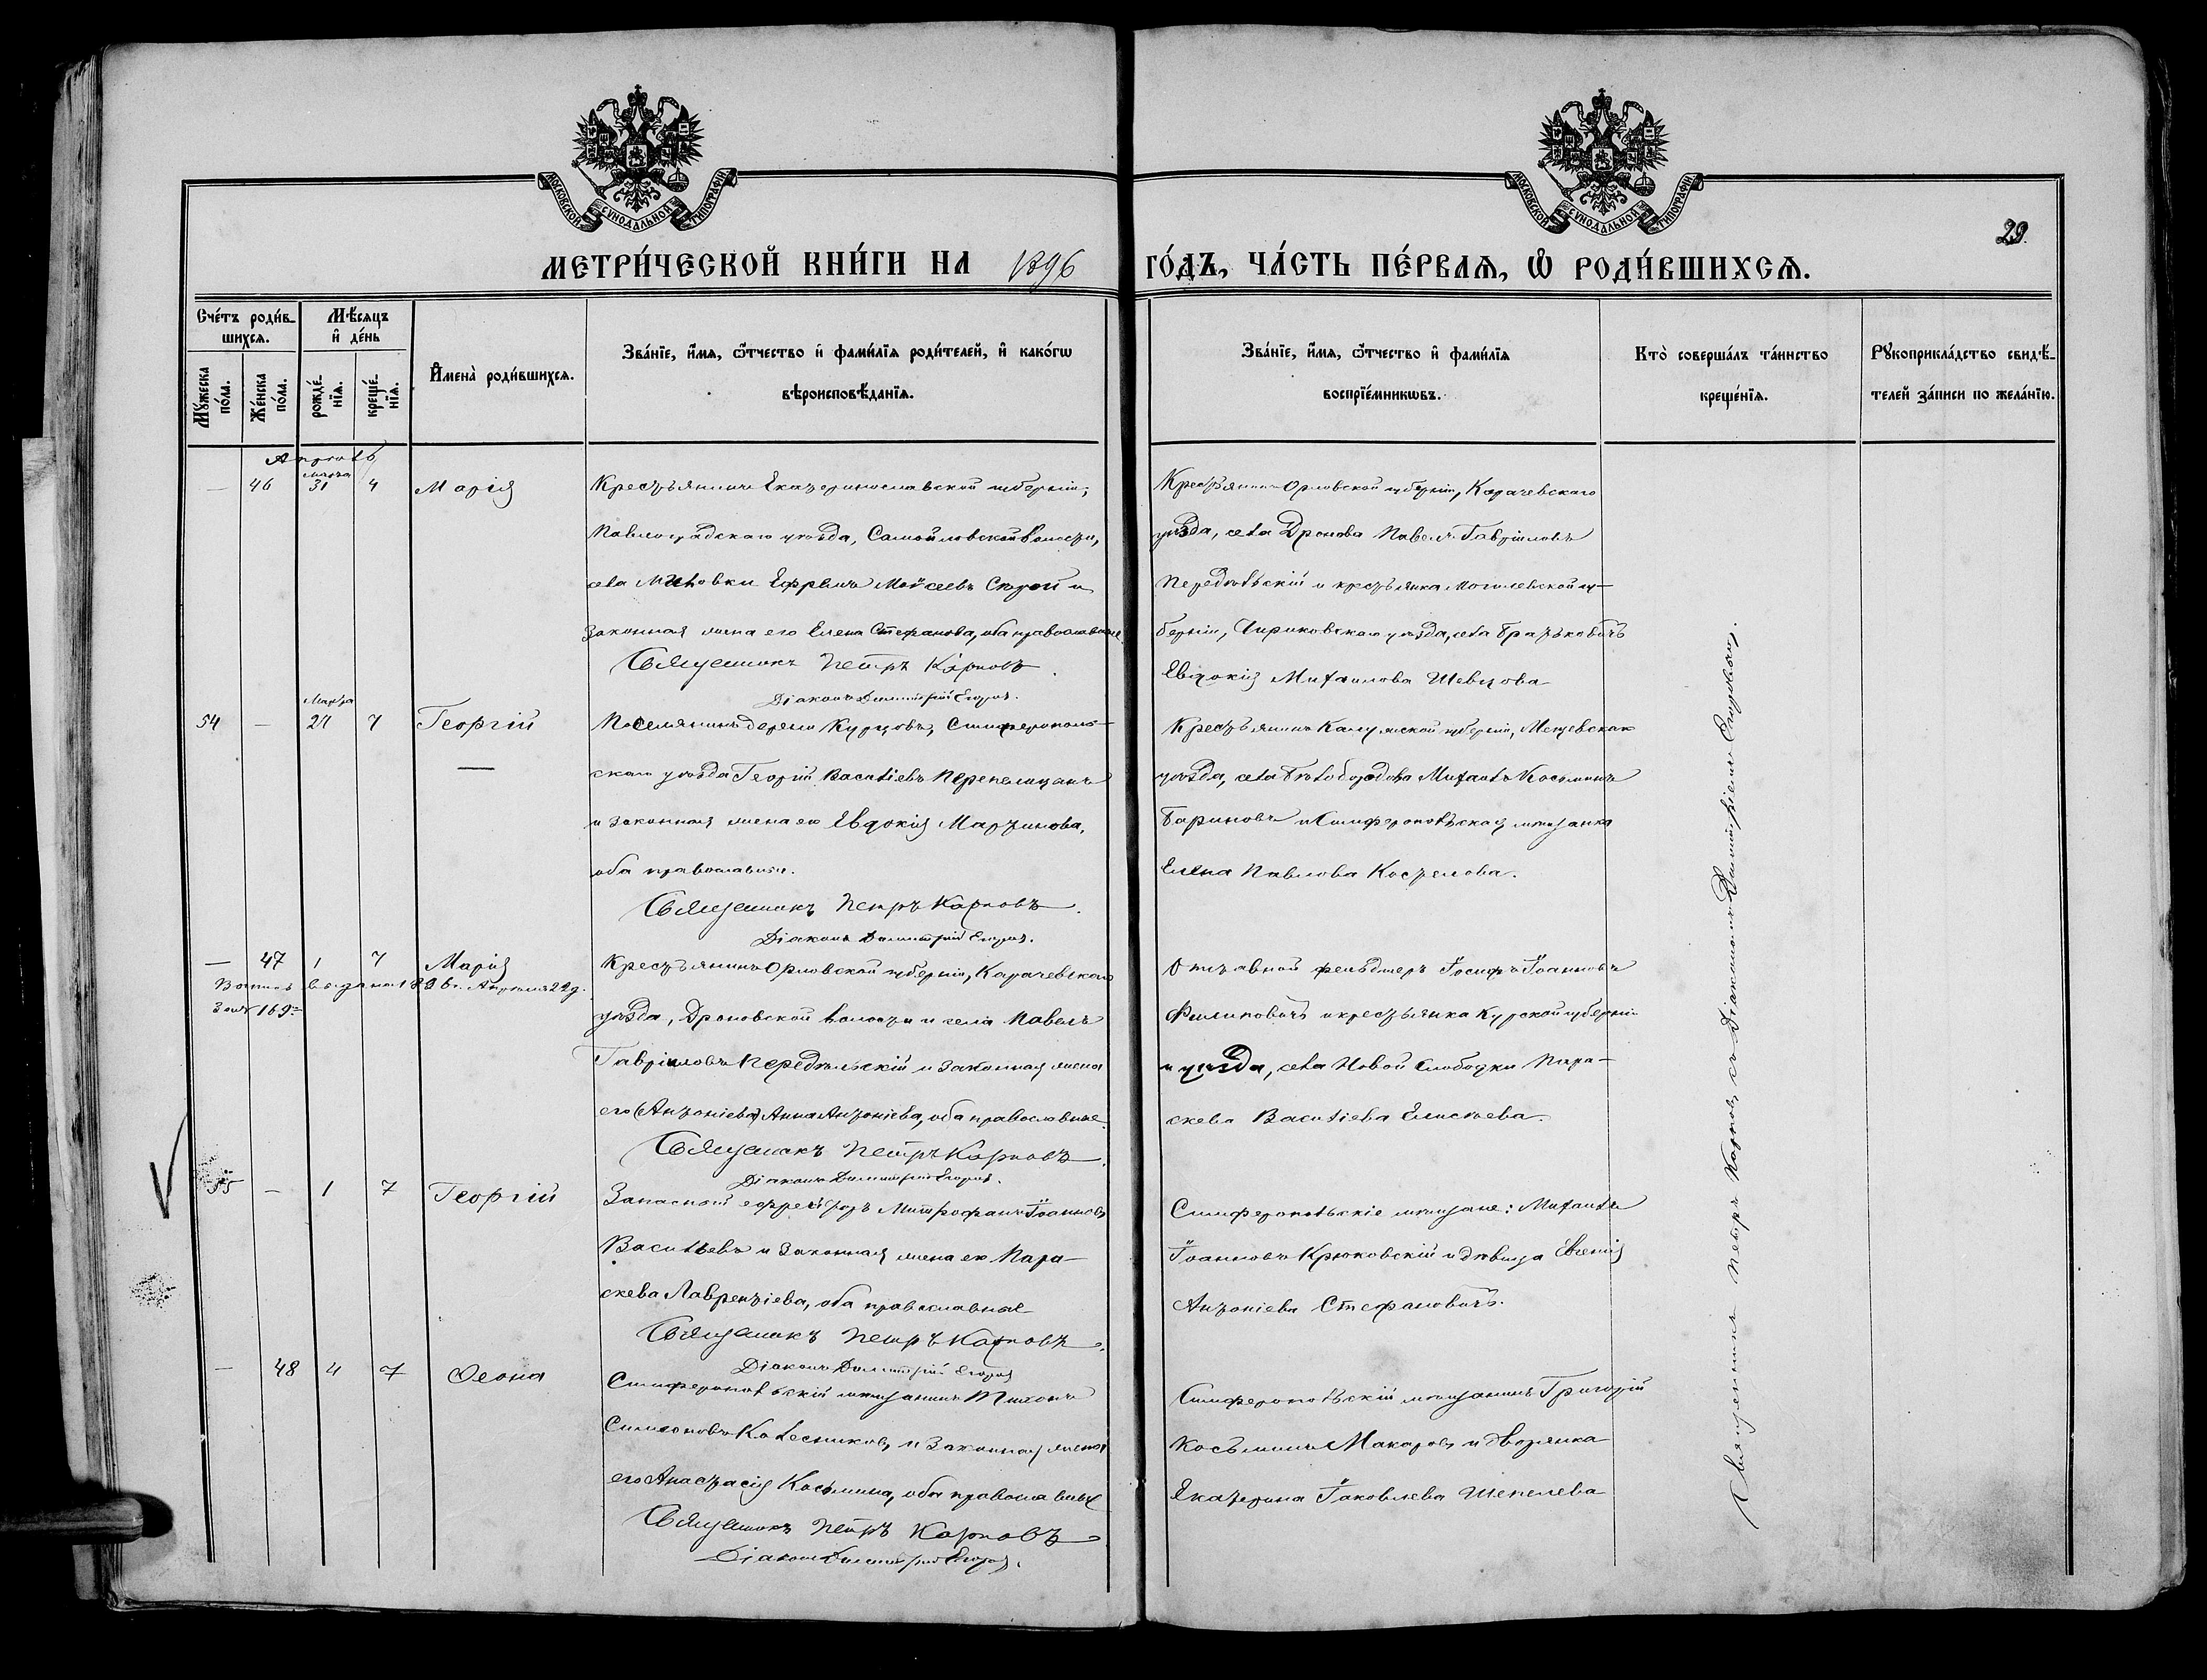 МОСКОВСКОЙ СѴНОДАЛЬНОЙ ТИПОГРАФІИ
МОСКОВСКОЙ СѴНОДАЛЬНОЙ ТИПОГРАФІИ
29.
МЕТРИ́ЧЕСКОЙ КНИ́ГИ НА 1896 ГО́ДЪ, ЧА́СТЬ ПЕ́РВАѦ, Ѿ РОДИ́ВШИХСѦ.
Сче́тъ роди́вшихсѧ.
Мѣ́сѧцъ и҆ де́нь
Му́жеска по́ла.
Же́нска по́ла.
рожде́нїѧ.
креще́нїѧ.
И҆мена̀ роди́вшихсѧ.
Зва́нїе, и҆́мѧ, ѻ҆́тчество и҆ фами́лїѧ роди́телей, и҆ како́гѡ вѣроисповѣ́данїѧ.
Зва́нїе, и҆́мѧ, ѻ҆́тчество и҆ фами́лїѧ воспрїе́мникѡвъ.
Кто̀ соверша́лъ та́инство креще́нїѧ.
Рꙋкоприкла́дство свидѣ́телей за́писи по жела́нїю.
Апрѣль
— 46 Марта 31 4 Марія
Крестьянинъ Екатеринославской губерніи,
Павлоградскаго уѣзда, Самойловской волости,
села Миновки Ефремъ Моѵсеевъ Скорой и
законная жена его Елена Стефанова, оба православные
Священникъ Петръ Карповъ.
Діаконъ Димитрій Егоровъ.
Крестьянинъ Орловской губерніи, Карачевскаго
уѣзда, села Дронова Павелъ Гавріиловъ
Передѣльскій и крестьянка Могилевской гу-
берніи, Чириковскаго уѣзда, села Братьковичъ
Евдокія Михаилова Шевцова
54 — Марта 27 7 Георгій
Поселянинъ дерени Курцовъ, Симферополь-
скаго уѣзда Георгій Васильевъ Перепелицанъ
и законная жена его Евдокія Мартинова,
оба православные.
Священникъ Петръ Карповъ.
Діаконъ Димитрій Егоровъ.
Крестьянинъ Калужской губерніи, Мещевскаго
уѣзда, села Бѣлобородова Михаилъ Косьминъ
Бариновъ и Симферопольская мѣщанка
Елена Павлова Костелова.
— 47 1 7 Марія
выдана 1896 г. Апрѣля 22 д.
За № 169
Крестьянинъ Орловской губерніи, Карачевскаго
уѣзда, Дроновской волости и села Павелъ
Гавріиловъ Передѣльскій и законная жена
его (Антоніева) Анна Антоніева, оба православные.
Священникъ Петръ Карповъ.
Діаконъ Димитрій Егоровъ.
Отставной фельдшеръ Іосифъ Іоанновъ
Филиповичъ и крестьянка Курской губерніи
и уѣзда, села Новой Слободки Пара-
скева Васильева Елисѣева.
55 — 1 7 Георгій
Запасной ефрейторъ Митрофанъ Іоанновъ
Васильевъ и законная жена его Пара-
скева Лаврентіева, оба православные
Священникъ Петръ Карповъ.
Діаконъ Димитрій Егоровъ
Симферопольскіе мѣщане: Михаилъ
Іоанновъ Крюковскій и дѣвица Евгенія
Антоніева Стефановичъ.
— 48 4 7 Ѳеона
Симферопольскій мѣщанинъ Тихонъ
Симеоновъ Колесниковъ и законная жена
его Анастасія Косьмина, оба православные
Священникъ Петръ Карповъ
Діаконъ Димитрій Егоровъ.
Симферопольскій мѣщанинъ Григорій
Косьминъ Макаровъ и дворянка
Екатерина Іаковлева Шепелева
Священникъ Петръ Карповъ, съ Діакономъ Димитріемъ Егоровымъ.